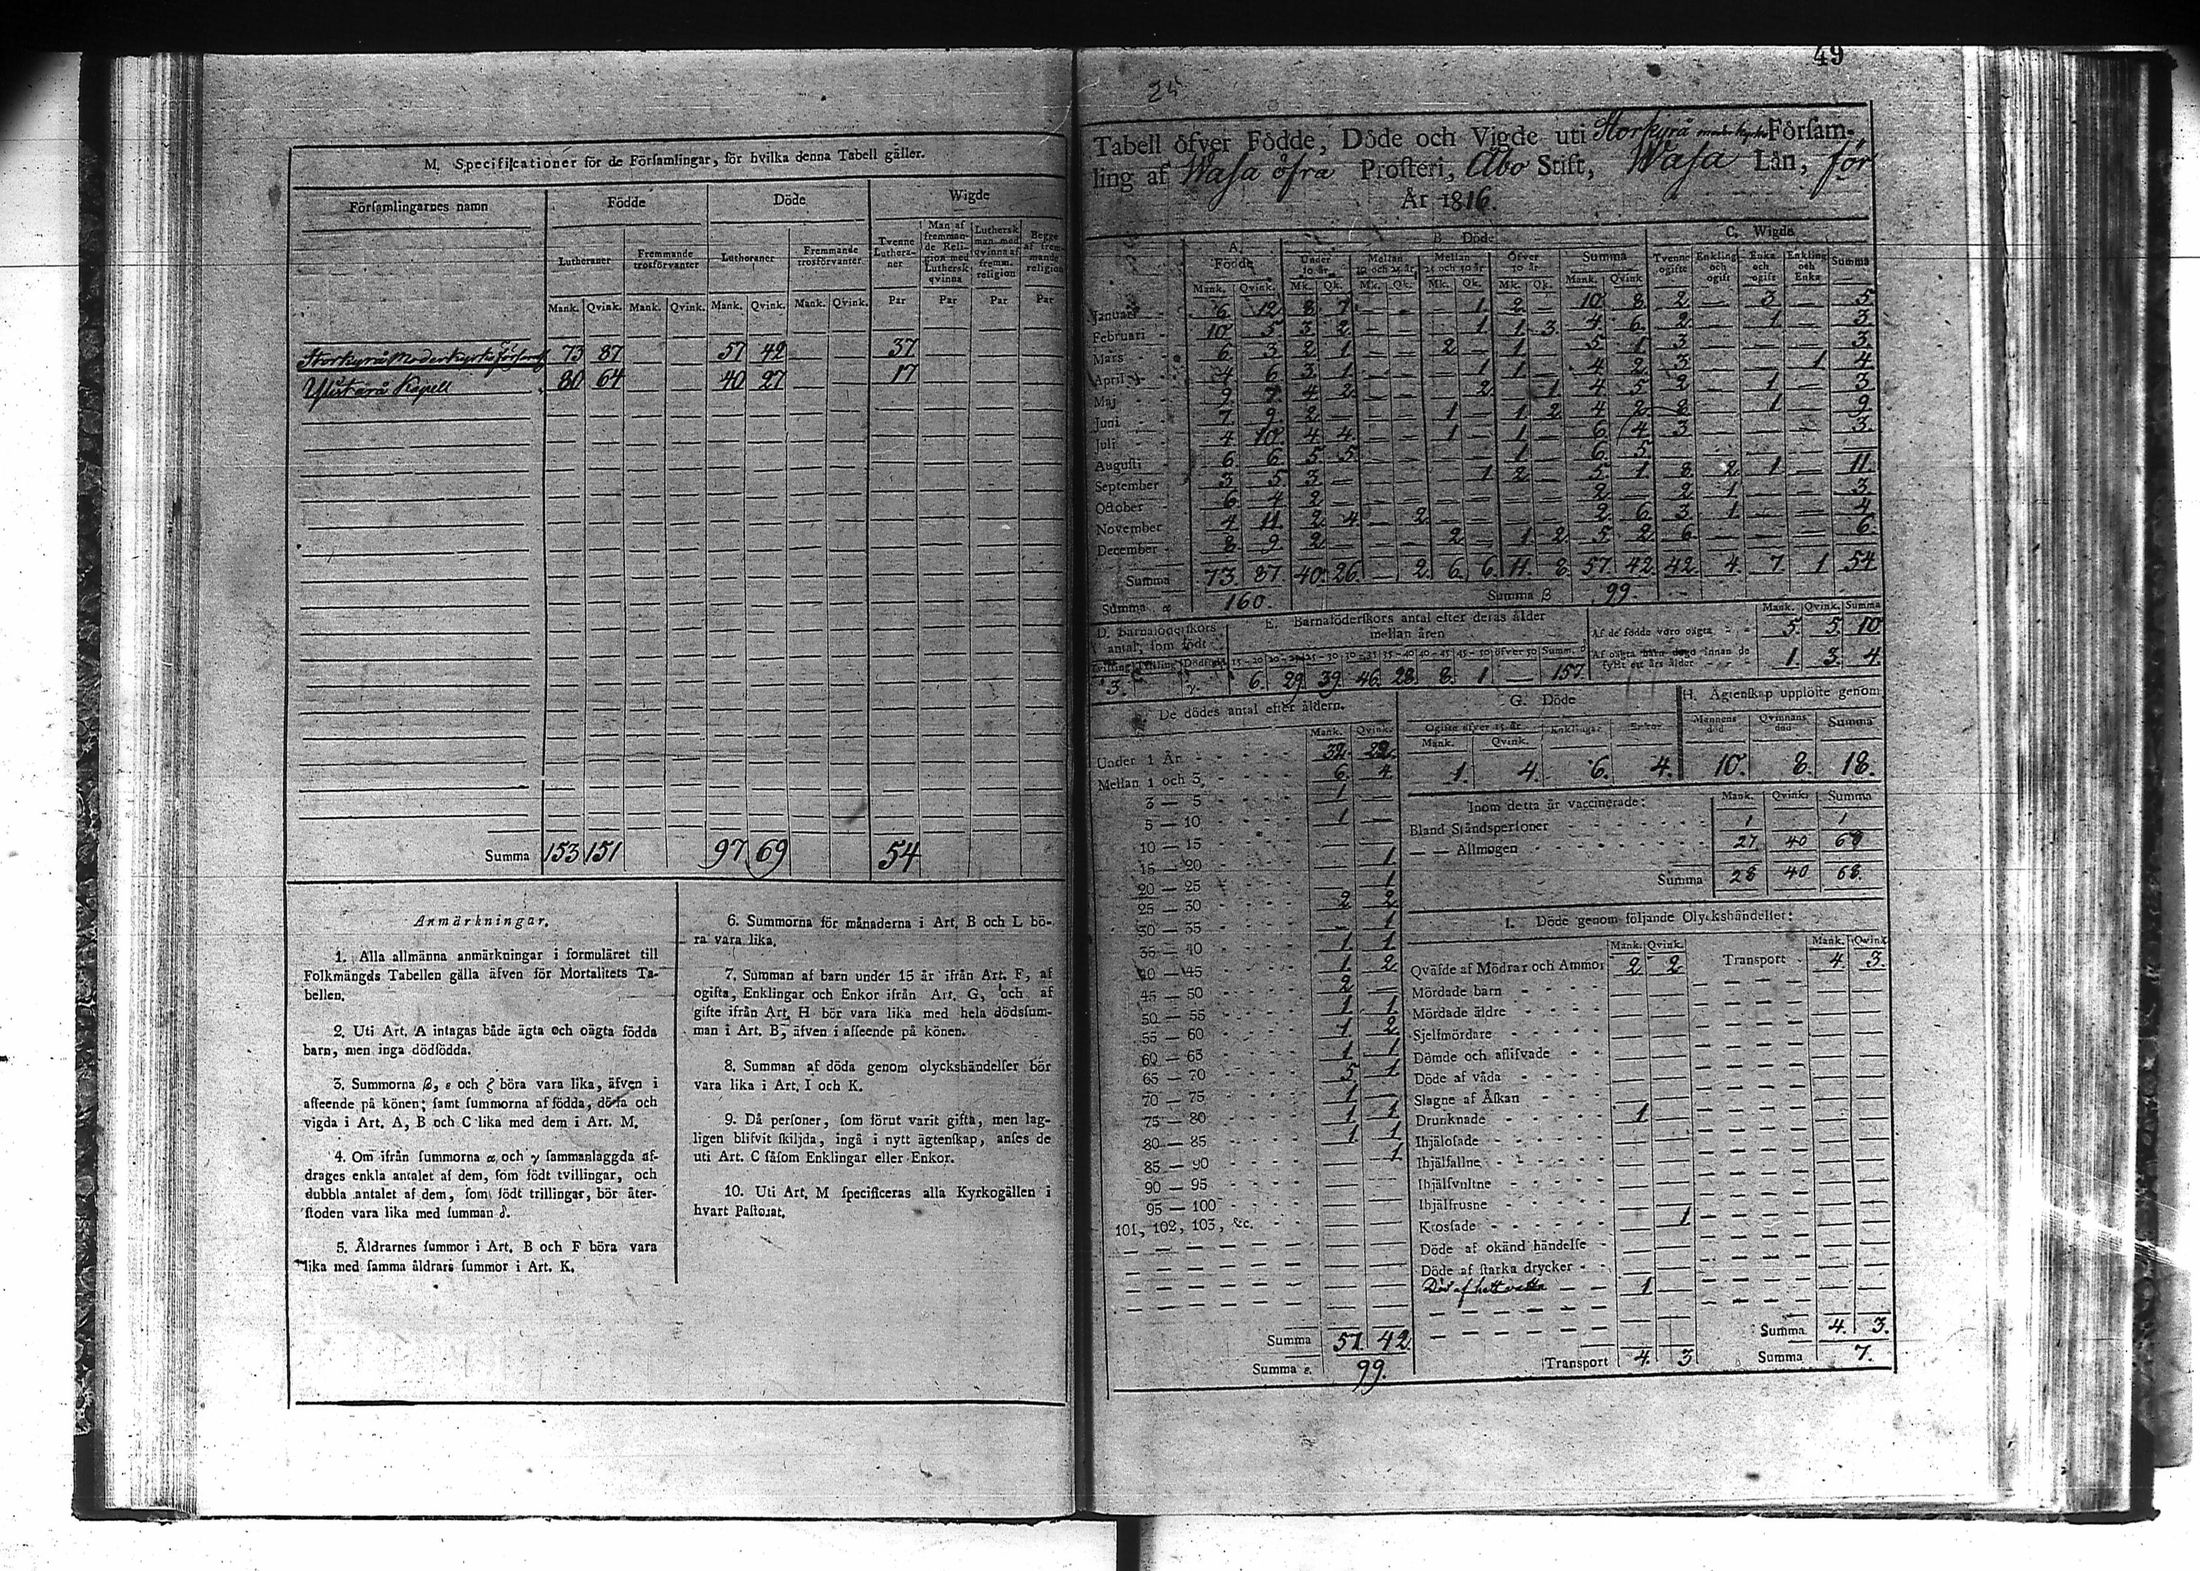 M. Specificationer för de Församlingar, för hvilka denna Tabell gäller.
Församlingarnes namn
Födde
Döde
Wigde
Lutheraner
Fremmande trosförvanter
Lutheraner
Fremmande trosförvanter
Tvenne Lutheraner
Man af fremmande Religion med Luthersk qvinna
Luthersk man med qvinna af fremm. religion
Begge af fremmande religion
Mank. Qvink. Mank. Qvink. Mank. Qvink. Mank. Qvink. Par Par Par Par
Storkyrå Moderkyrko Församl 73 87 — — 57 42 — — 37
Kapell 80 64 — — 40 27 — — 17
Summa 153 151 97 69 54
Anmärkningar.
1. Alla allmänna anmärkningar i formuläret till
Folkmängds Tabellen gälla äfven för Mortalitets Ta-
bellen.
2. Uti Art. A intagas både ägta och oägta födda
barn, men inga dödfödda.
3. Summorna β, ε och ζ böra vara lika, äfven i
afseende på könen; samt summorna af födda, döda och
vigda i Art. A, B och C lika med dem i Art. M.
4. Om ifrån summorna α och γ sammanlaggda af-
drages enkla antalet af dem, som födt tvillingar, och
dubbla antalet af dem, som födt trillingar, bör åter-
stoden vara lika med summan δ.
5. Åldrarnes summor i Art. B och F böra vara
lika med samma åldrars summor i Art. K.
6. Summorna för månaderna i Art. B och L bö-
ra vara lika.
7. Summan af barn under 15 år ifrån Art. F, af
ogifta, Enklingar och Enkor ifrån Art. G, och af
gifte ifrån Art. H bör vara lika med hela dödssum-
man i Art. B, äfven i afseende på könen.
8. Summan af döda genom olyckshändelser bör
vara lika i Art. I och K.
9. Då personer, som förut varit gifta, men lag-
ligen blifvit skiljda, ingå i nytt ägtenskap, anses de
uti Art. C såsom Enklingar eller Enkor.
10. Uti Art. M specificeras alla Kyrkogällen i
hvart Pastorat.
49
25
Tabell öfver Födde, Döde och Vigde uti Storkyrå moder kyrko Försam-
ling af Wasa öfra Prosteri, Åbo Stift, Wasa Län, för
År 1816.
A. Födde
B. Döde
C. Wigde
Under 10 år
Mellan 10 och 25 år
Mellan 25 och 50 år
Öfver 50 år
Summa
Tvenne ogifte
Enkling och ogift
Enka och ogift
Enkling och Enka
Summa
Mank. Qvink. Mk. Qk. Mk. Qk. Mk. Qk. Mk. Qk. Mank. Qvink.
Januari 6 12 8 7 — — — 1 2 — 10 8 2 — 3 — 5
Februari 10 5 3 2 — — — 1 1 3 4 6 2 — 1 — 3
Mars 6 3 2 1 — — 2 — 1 — 5 1 3 — — — 3
April 4 6 3 1 — — — 1 1 — 4 2 3 — — 1 4
Maj 9 7 4 2 — — — 2 — 1 4 5 2 — 1 — 3
Juni 7 9 2 — — — 1 — 1 2 4 2 8 — 1 — 9
Juli 4 10 4 4 — — 1 — 1 — 6 4 3 — — — 3
Augusti 6 6 5 5 — — — — 1 — 6 5 — — — —
September 3 5 3 — — — — 1 2 — 5 1 8 2 1 — 11
October 6 4 2 — — — — — — — 2 — 2 1 — — 3
November 4 11 2 4 — 2 — — — — 2 6 3 1 — — 4
December 8 9 2 — — — 2 — 1 2 5 2 6 — — — 6
Summa 73 87 40 26 — 2 6 6 11 8 57 42 42 4 7 1 54
Summa α 160. Summa β 99.
D. Barnaföderskors antal, som födt
Tvilling Trilling Dödfödd
3.
γ
E. Barnaföderskors antal efter deras ålder mellan åren
15-20 20-25 25-30 30-35 35-40 40-45 45-50 öfver 50 Summ. δ
6. 29 39 46 28 8 1 — 157.
Mank. Qvink. Summa
Af de födde voro oägta 5. 5. 10
Af oägta barn dogo innan de fyllt ett års ålder 1. 3. 4.
De dödes antal efter åldern.
Mank. Qvink.
Under 1 År 32 22
Mellan 1 och 3 6 4
3 — 5 1 —
5 — 10 1 —
10 — 15 — —
15 — 20 — 1
20 — 25 — 1
25 — 30 2 2
30 — 35 — 1
35 — 40 1 1
40 — 45 1 2
45 — 50 2 —
50 — 55 1 1
55 — 60 1 2
60 — 65 1 1
65 — 70 5 1
70 — 75 1 —
75 — 80 1 1
80 — 85 1 1
85 — 90 — 1
90 — 95 — —
95 — 100 — —
101, 102, 103, &c. — —
Summa 57 42
Summa ε. 99.
G. Döde
Ogifte öfver 15 år
Enklingar
Enkor
Mank. Qvink.
1. 4 6. 4.
H. Ägtenskap upplöste genom
Mannens död
Qvinnans död
Summa
10. 8. 18.
Inom detta år vaccinerade:
Mank. Qvink. Summa
Bland Ståndspersoner 1 1
— — Allmogen 27 40
Summa 28 40 68.
I. Döde genom följande Olyckshändelser:
Mank. Qvink. Mank. Qvink.
Qväfde af Mödrar och Ammor 2 2 Transport 4. 3.
Mördade barn
Mördade äldre
Sjelfmördare
Dömde och aflifvade
Döde af våda
Slagne af Åskan
Drunknade 1
Ihjälosade
Ihjälfallne
Ihjälsvultne
Ihjälfrusne
Krossade 1
Döde af okänd händelse
Döde af starka drycker
Död af hett vatten 1
Summa 4. 3.
Transport 4. 3 Summa 7.